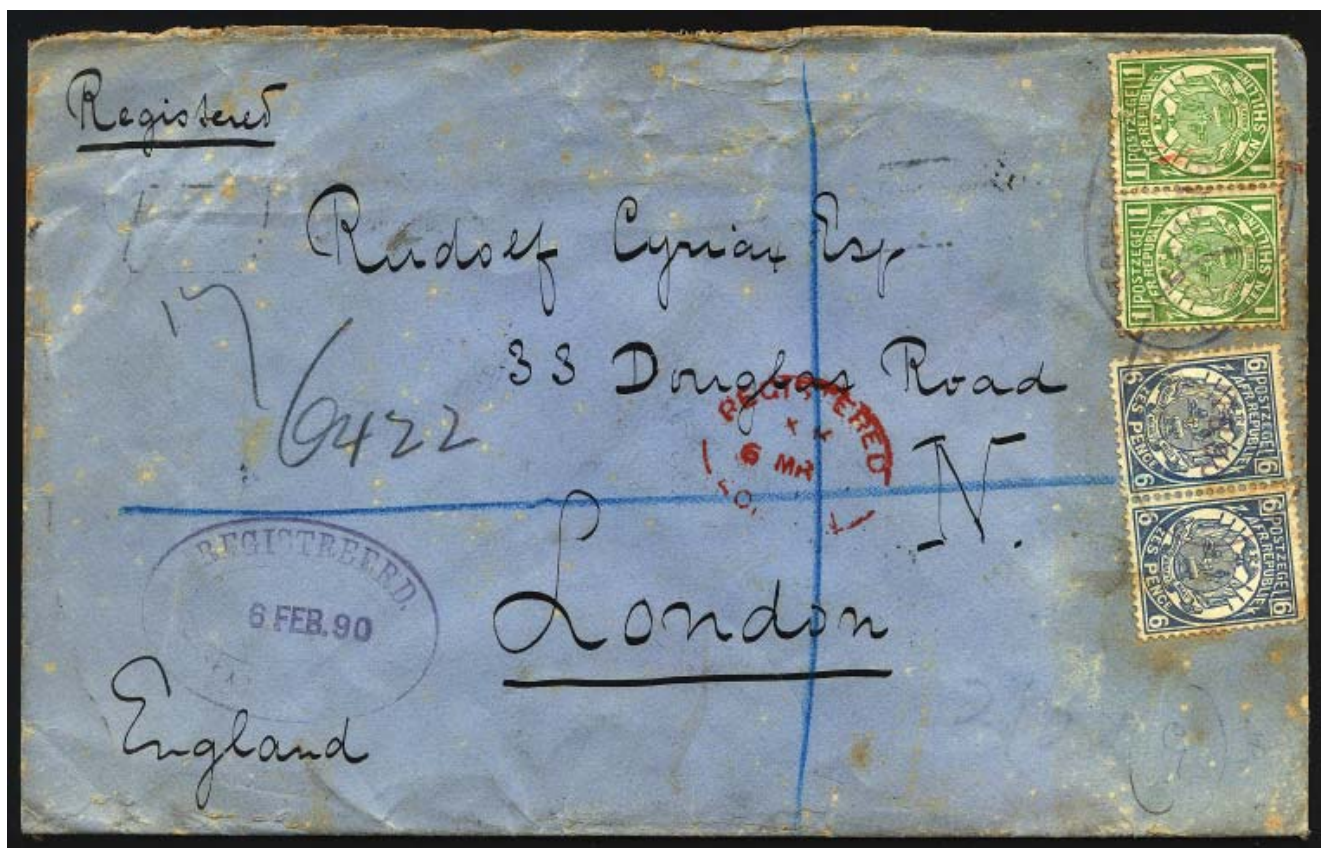 Registered
Rudolf Cyriax Esq
33 Douglas Road
N.
London
England
17
6422
REGISTERED
6 MR
90
REGISTREERD.
6 FEB. 90
1 POSTZEGEL 1
AFR. REPUBLIEK
EEN SHILLING
1 POSTZEGEL 1
AFR. REPUBLIEK
EEN SHILLING
6 POSTZEGEL 6
AFR. REPUBLIEK
6 ZES PENCE 6
6 POSTZEGEL 6
AFR. REPUBLIEK
6 ZES PENCE 6